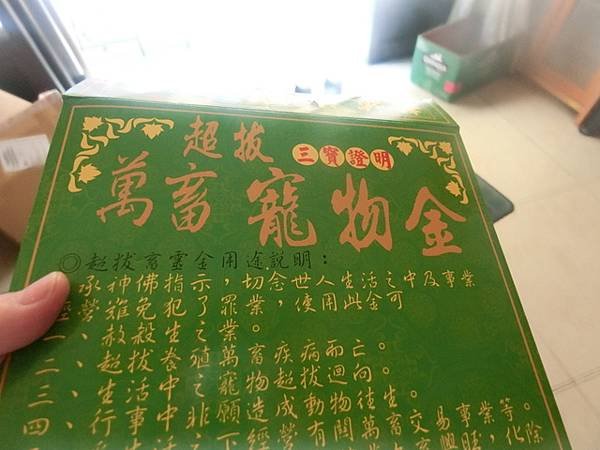 超拔
三寶證明
萬畜寵物金
◎超拔畜靈金用途說明：
承神佛指示，切念世人生活之中及事業
經營，難免犯了罪業，便用此金可
一、赦殺生之業。
二、超拔養殖萬畜疾病而亡。
三、生活中之寵物超拔迴向。
四、行事中非願造成動物往生。
下經營有關萬畜交易事業，等。
化除